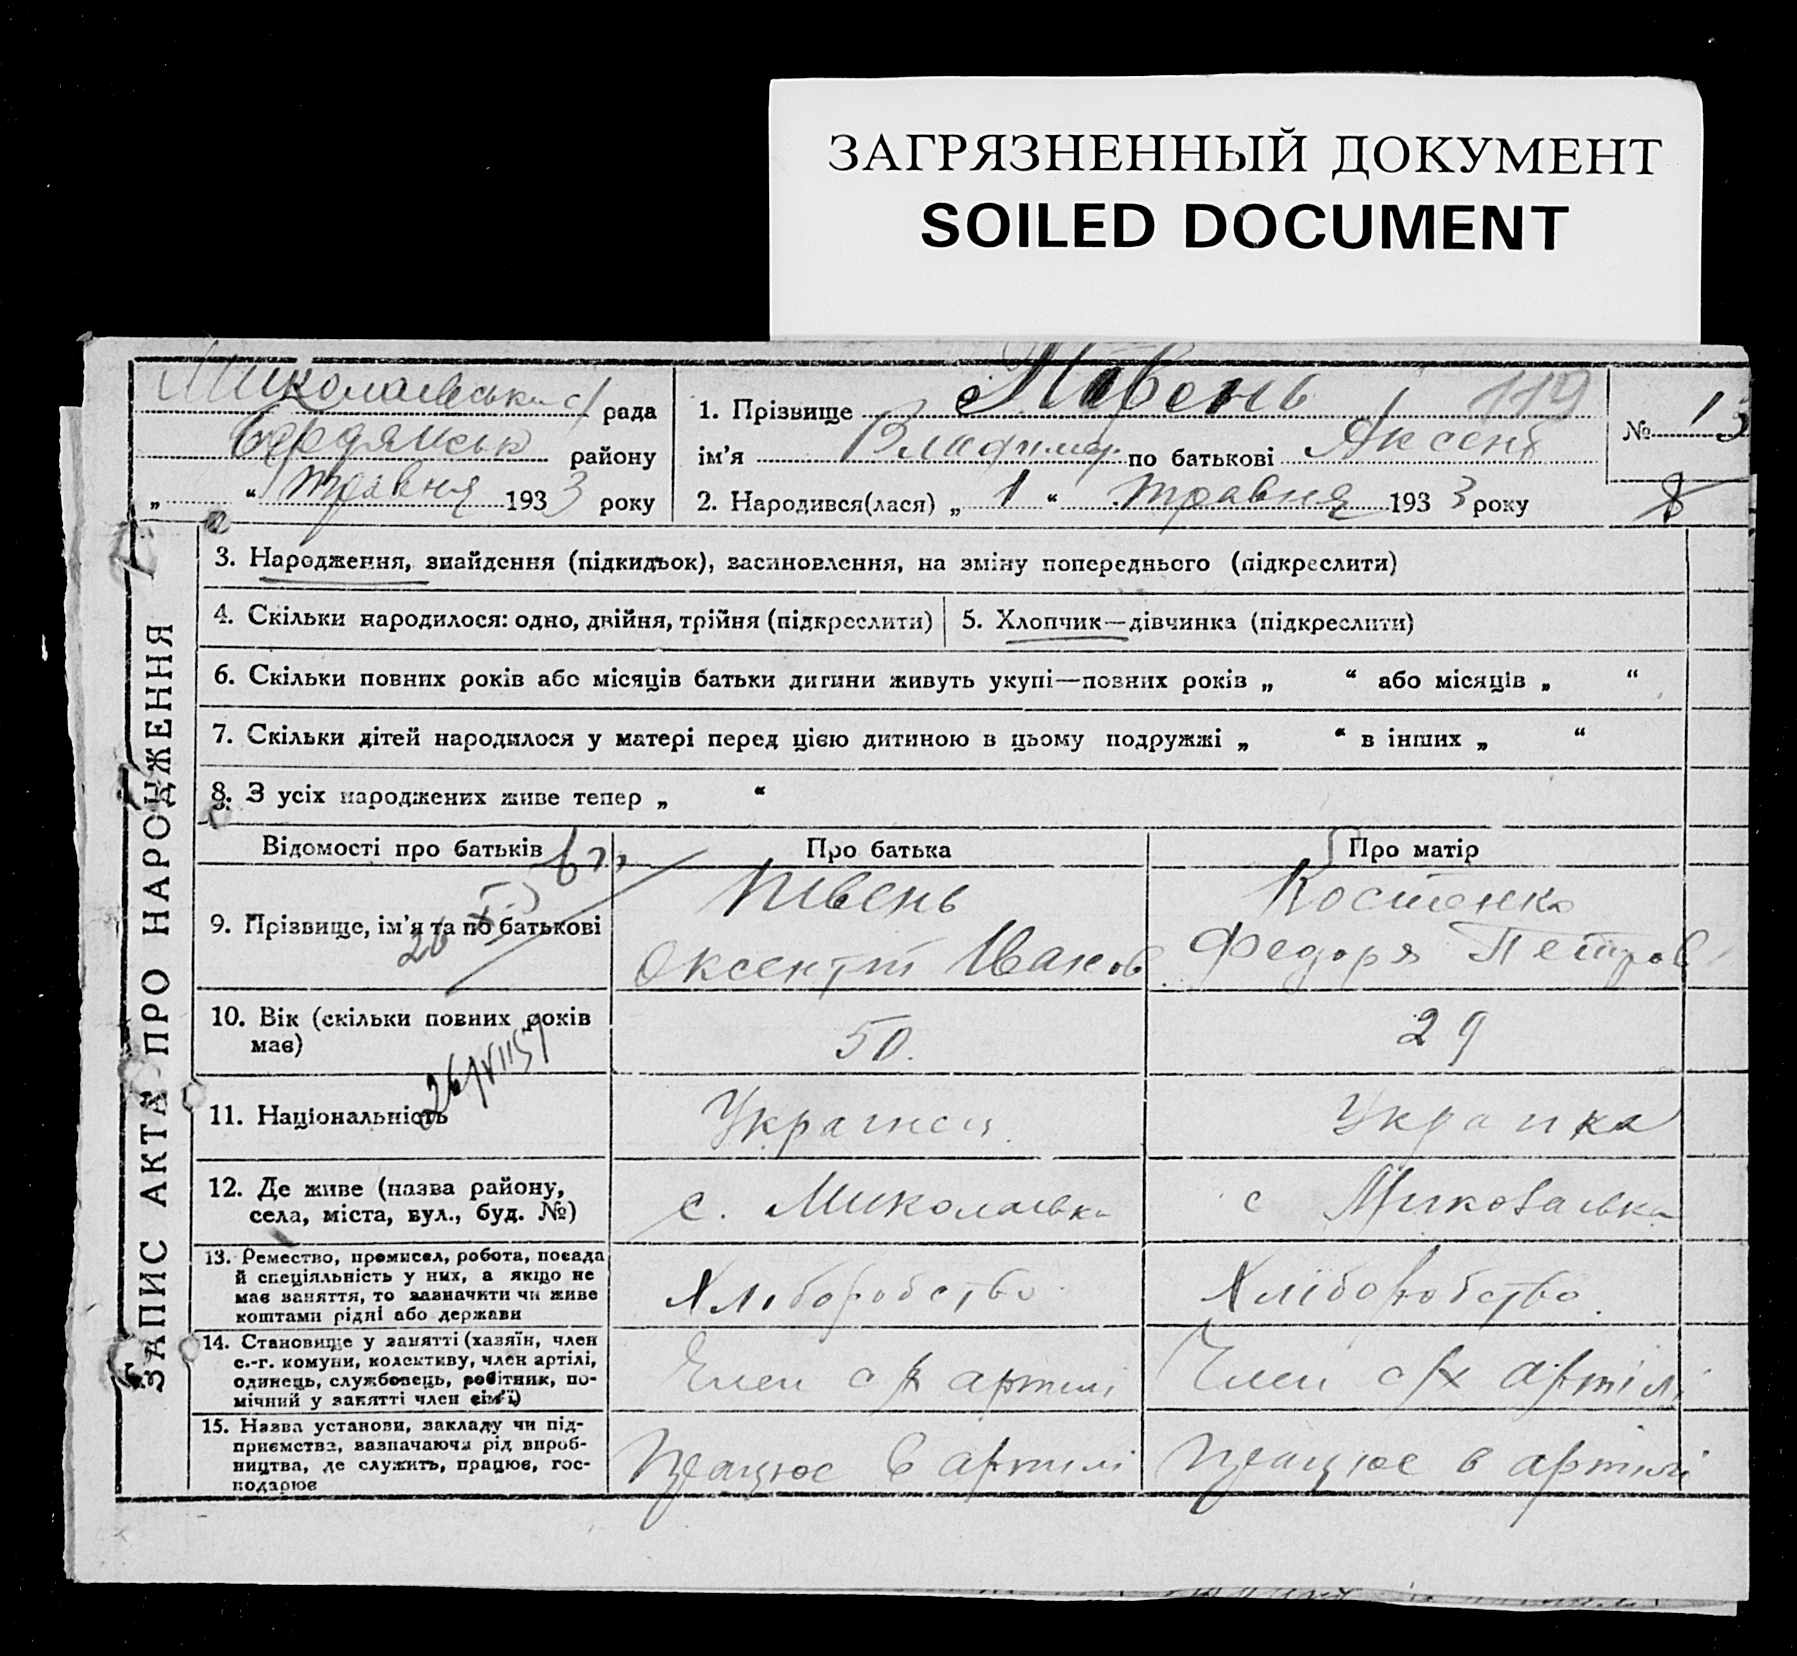 ЗАГРЯЗНЕННЫЙ ДОКУМЕНТ
SOILED DOCUMENT
Миколаївськи с/ рада
Бердянськ району
„ “ травня 1933 року
1. Прізвище Півень 119
ім'я Владимир по батькові Аксент
2. Народився(лася) „ 1 “ травня 1933 року
№ 13
8
ЗАПИС АКТА ПРО НАРОДЖЕННЯ
3. Народження, знайдення (підкидьок), засиновлення, на зміну попереднього (підкреслити)
4. Скільки народилося: одно, двійня, трійня (підкреслити)
5. Хлопчик—дівчинка (підкреслити)
6. Скільки повних років або місяців батьки дитини живуть укупі—повних років „ “ або місяців „ “
7. Скільки дітей народилося у матері перед цією дитиною в цьому подружжі „ “ в інших „ “
8. З усіх народжених живе тепер „ “
Відомості про батьків
Про батька
Про матір
9. Прізвище, ім'я та по батькові
Півень
Оксентій Іванов
Костенко
Федоря Петров
10. Вік (скільки повних років
має)
50.
29
11. Національність
Українец
Українка
12. Де живе (назва району,
села, міста, вул., буд. №)
с. Миколаївка
с Миколаївка
13. Ремество, промисел, робота, посада
й спеціяльність у них, а якщо не
має заняття, то зазначити чи живе
коштами рідні або держави
Хліборобство
Хліборобство.
14. Становище у занятті (хазяїн, член
с.-г. комуни, колективу, член артілі,
одинець, службовець, робітник, по-
мічний у занятті член сім'ї)
Член с/х артілі
Член с/х артілі
15. Назва установи, закладу чи під-
приємства, зазначаючи рід вироб-
ництва, де служить, працює, гос-
подарює
Працює в артілі
Працює в артілі